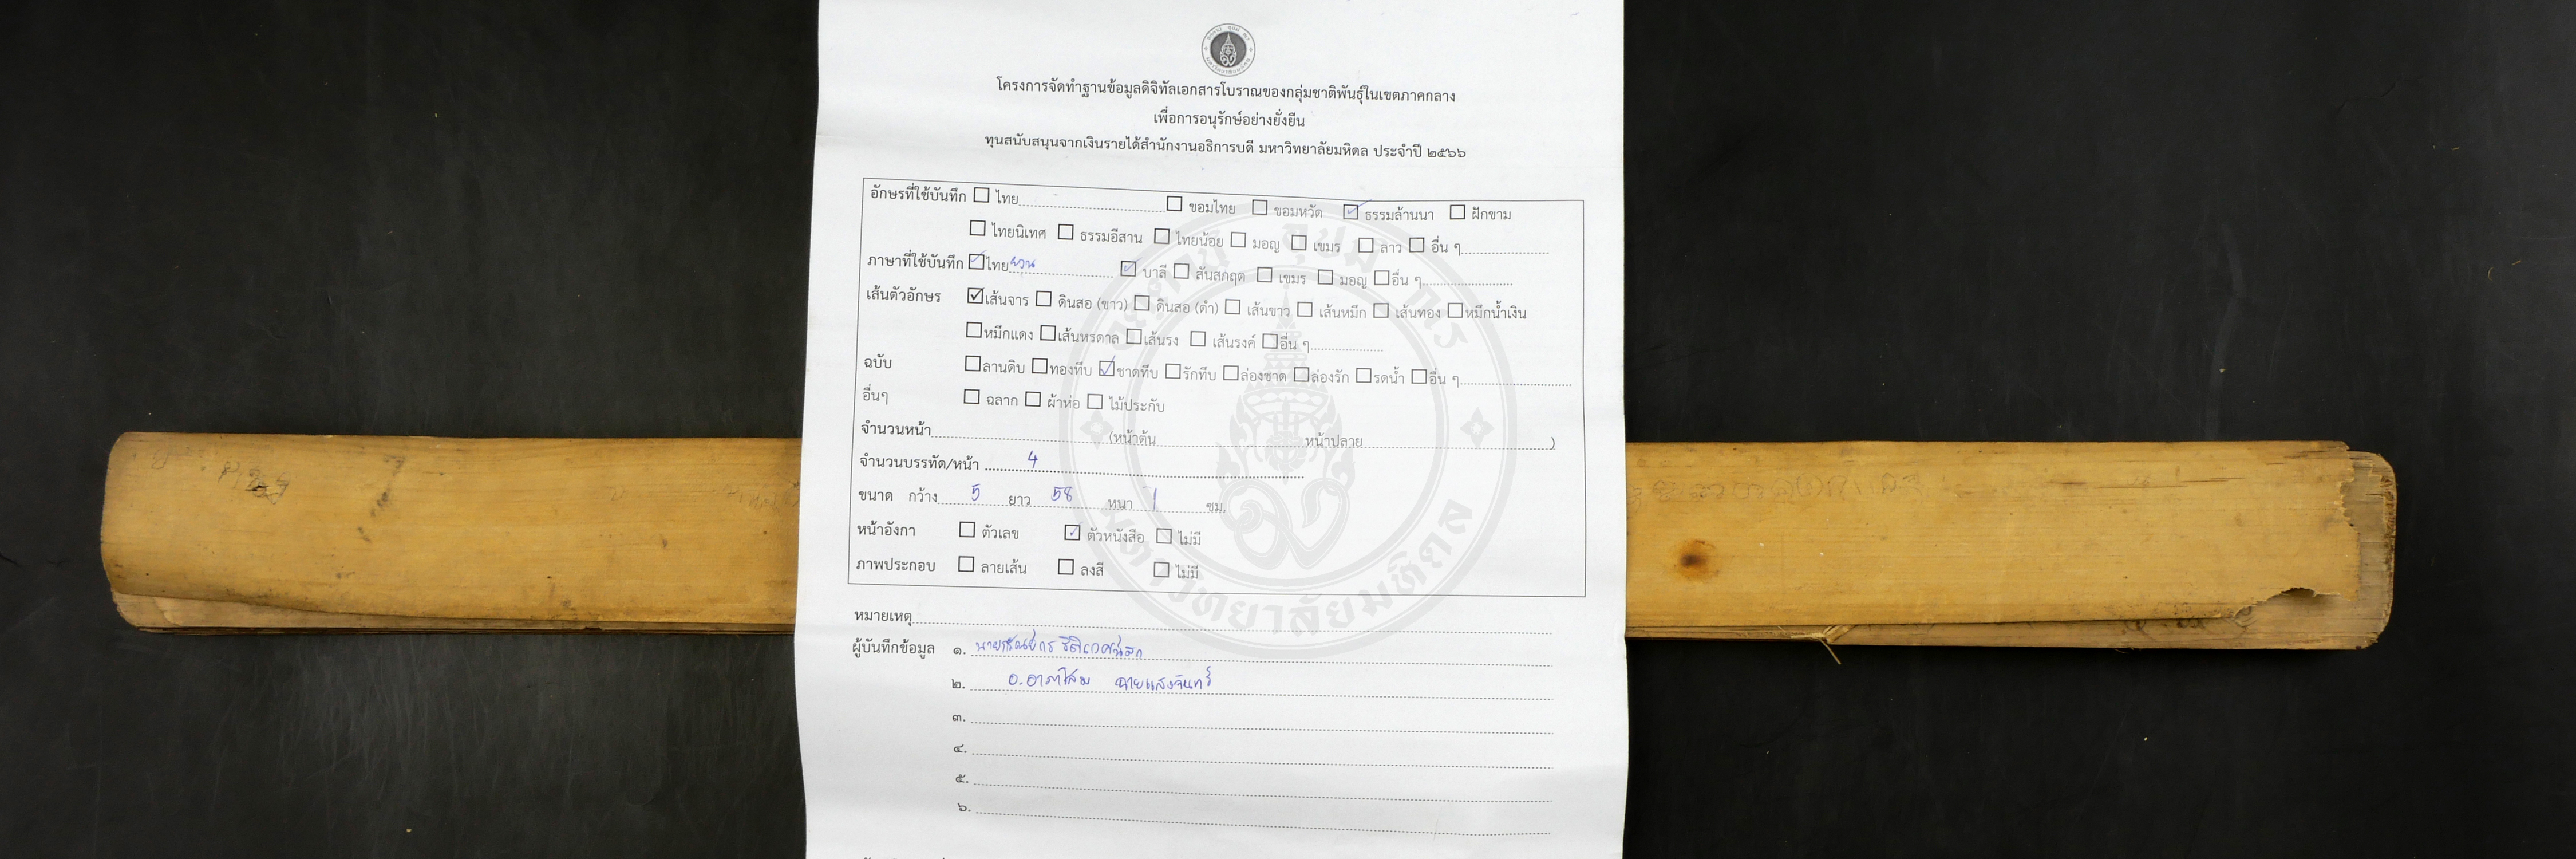 โครงการจัดทำฐานข้อมูลดิจิทัลเอกสารโบราณของกลุ่มชาติพันธุ์ในเขตภาคกลาง
เพื่อการอนุรักษ์อย่างยั่งยืน
ทุนสนับสนุนจากเงินรายได้สำนักงานอธิการบดี มหาวิทยาลัยมหิดล ประจำปี ๒๕๖๖
อักษรที่ใช้บันทึก ☐ ไทย ☐ ขอมไทย ☐ ขอมหวัด ☑ ธรรมล้านนา ☐ ฝักขาม
☐ ไทยนิเทศ ☐ ธรรมอีสาน ☐ ไทยน้อย ☐ มอญ ☐ เขมร ☐ ลาว ☐ อื่น ๆ
ภาษาที่ใช้บันทึก ☑ ไทย ยวน ☑ บาลี ☐ สันสกฤต ☐ เขมร ☐ มอญ ☐ อื่น ๆ
เส้นตัวอักษร ☑ เส้นจาร ☐ ดินสอ (ขาว) ☐ ดินสอ (ดำ) ☐ เส้นขาว ☐ เส้นหมึก ☐ เส้นทอง ☐ หมึกน้ำเงิน
☐ หมึกแดง ☐ เส้นหรดาล ☐ เส้นรง ☐ เส้นรงค์ ☐ อื่น ๆ
ฉบับ ☐ ลานดิบ ☐ ทองทึบ ☑ ชาดทึบ ☐ รักทึบ ☐ ล่องชาด ☐ ล่องรัก ☐ รดน้ำ ☐ อื่น ๆ
อื่นๆ ☐ ฉลาก ☐ ผ้าห่อ ☐ ไม้ประกับ
จำนวนหน้า (หน้าต้น หน้าปลาย )
จำนวนบรรทัด/หน้า 4
ขนาด กว้าง 5 ยาว 58 หนา 1 ซม.
หน้าอังกา ☐ ตัวเลข ☑ ตัวหนังสือ ☐ ไม่มี
ภาพประกอบ ☐ ลายเส้น ☐ ลงสี ☐ ไม่มี
หมายเหตุ
ผู้บันทึกข้อมูล ๑.
๒. อ.อาภาโสม ฉายแสงจันทร์
๓.
๔.
๕.
๖.